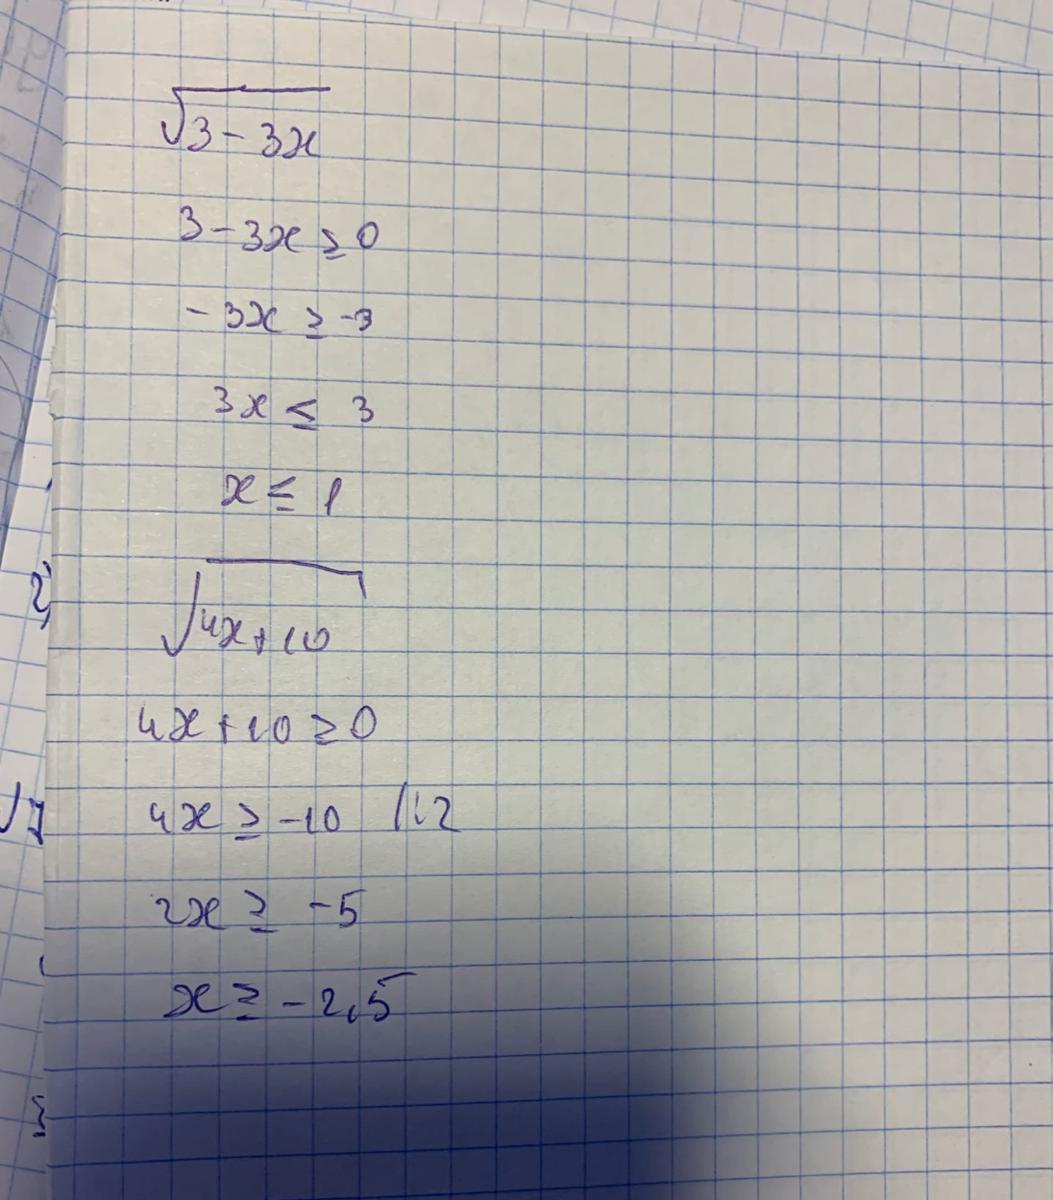 √3 - 3x
3 - 3x ≥ 0
- 3x ≥ -3
3x ≤ 3
x ≤ 1
√4x + 10
4x + 10 ≥ 0
4x ≥ -10 |:2
2x ≥ -5
x ≥ -2,5